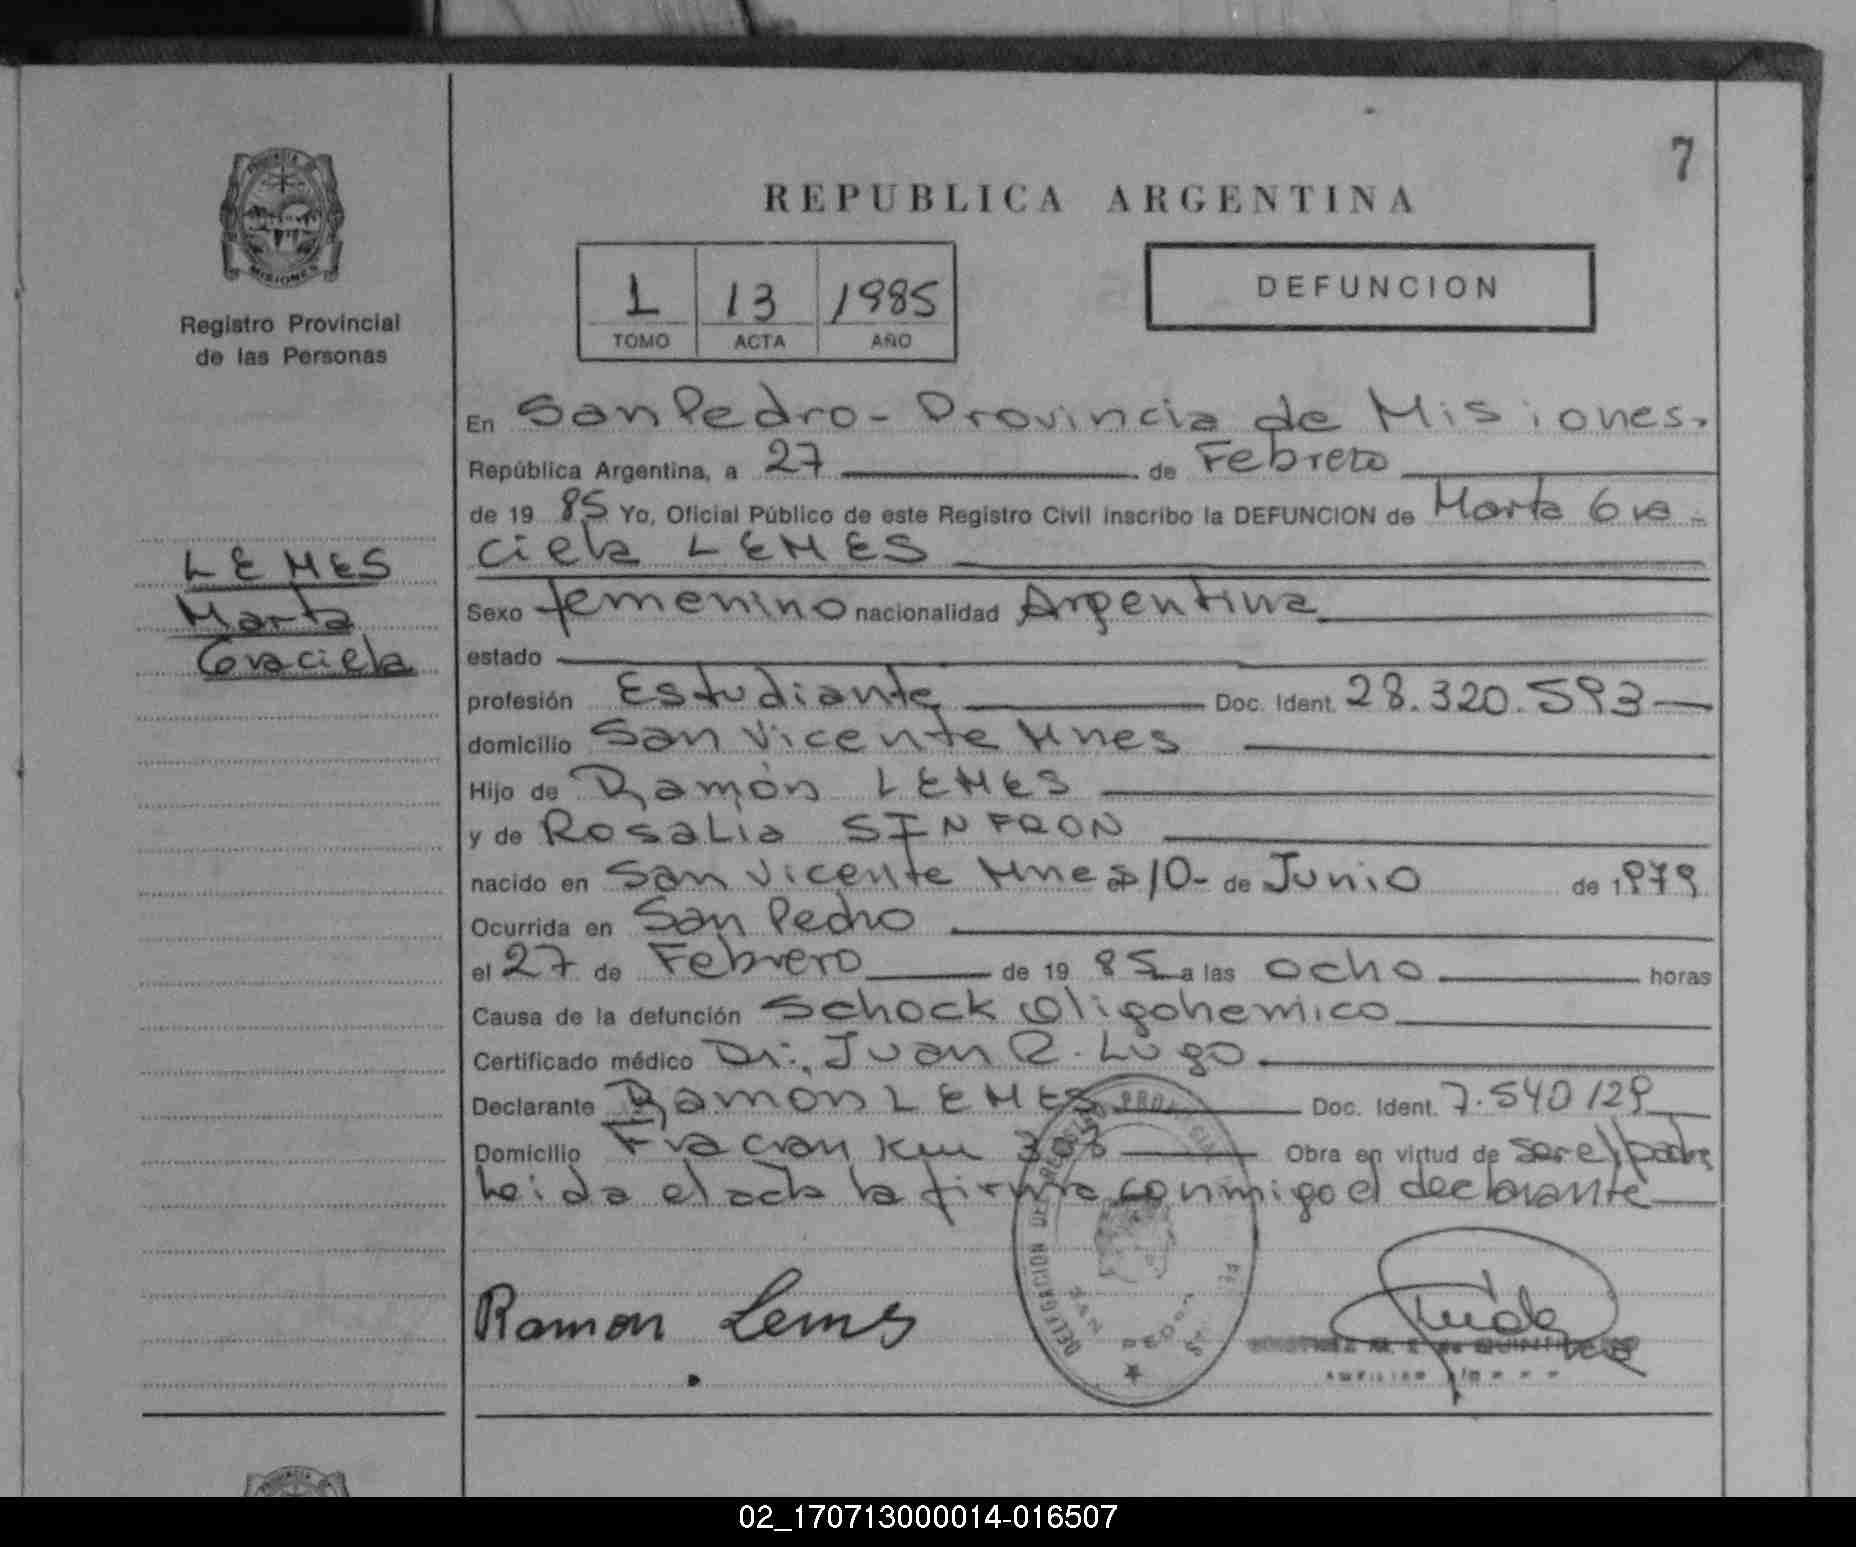 7
PROVINCIA
MISIONES
Registro Provincial
de las Personas
REPUBLICA ARGENTINA
1 13 1985
TOMO ACTA AÑO
DEFUNCION
LEMES
Marta
Graciela
En San Pedro - Provincia de Misiones.
República Argentina, a 27 de Febrero
de 19 85 Yo, Oficial Público de este Registro Civil inscribo la DEFUNCION de Marta Gra-
ciela LEMES
Sexo femenino nacionalidad Argentina
estado
profesión Estudiante Doc. Ident. 28.320.593
domicilio San Vicente Mnes
Hijo de Ramón LEMES
y de Rosalia SINFRON
nacido en San Vicente Mnes 10- de Junio de 1979
Ocurrida en San Pedro
el 27 de Febrero de 19 85 a las ocho horas
Causa de la defunción Schock Oligohemico
Certificado médico Dr. Juan R. Lugo
Declarante Ramón LEMES Doc. Ident. 7.540129
Domicilio Fracran Km 303 Obra en virtud de ser el padre
Leida el acta la firma conmigo el declarante
Ramon Lemes
DELEGACION DEL REGISTRO PROVINCIAL
SAN PEDRO
02_170713000014-016507